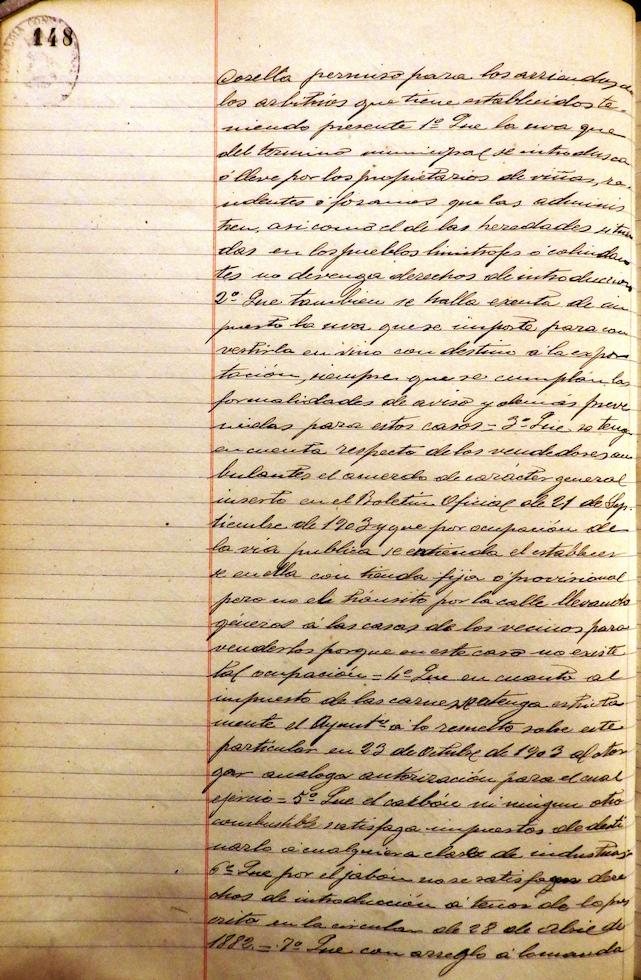 148
Dosella permiso para los arriendos de
los arbitrios que tiene establecidos te-
niendo presente 1º Que la uva que
del termino municipal se introduzca
ó lleve por los propietarios de viñas, re
ndentes ó foraneos que las adminis
tren, asi como el de las heredades situa
das en los pueblos limitrofes ó colindan
tes no devenga derechos de introduccion
2º Que tambien se halla exenta de im
puesto la uva que se importe para con
vertirla en vino con destino á la expor
tación, siempre que se cumplan las
formalidades de aviso y demás preve
nidas para estos casos = 3º Que se tenga
en cuenta respecto de los vendedores am
bulantes el acuerdo de carácter general
inserto en el Boletin Oficial de 21 de Sep-
tiembre de 1903 y que por ocupación de
la via publica se entienda el establecer
se en ella con tienda fija ó provisional
pero no el tránsito por la calle llevando
géneros á las casas de los vecinos para
venderlos porque en este caso no existe
tal ocupación = 4º Que en cuanto al
impuesto de las carnes se atenga estricta
mente el Ayuntº á lo resuelto sobre este
particular en 23 de Octubre de 1903 al otor
gar analoga autorización para el cual
ejercio = 5º Que el carbón ni ningun otro
combustible satisfaga impuestos de desti
narlo á cualquiera clase de industria =
6º Que por el jabón no se satisfagan dere
chos de introducción á tenor de lo pres
crito en la circular de 28 de Abril de
1882 = 7º Que con arreglo á lo manda